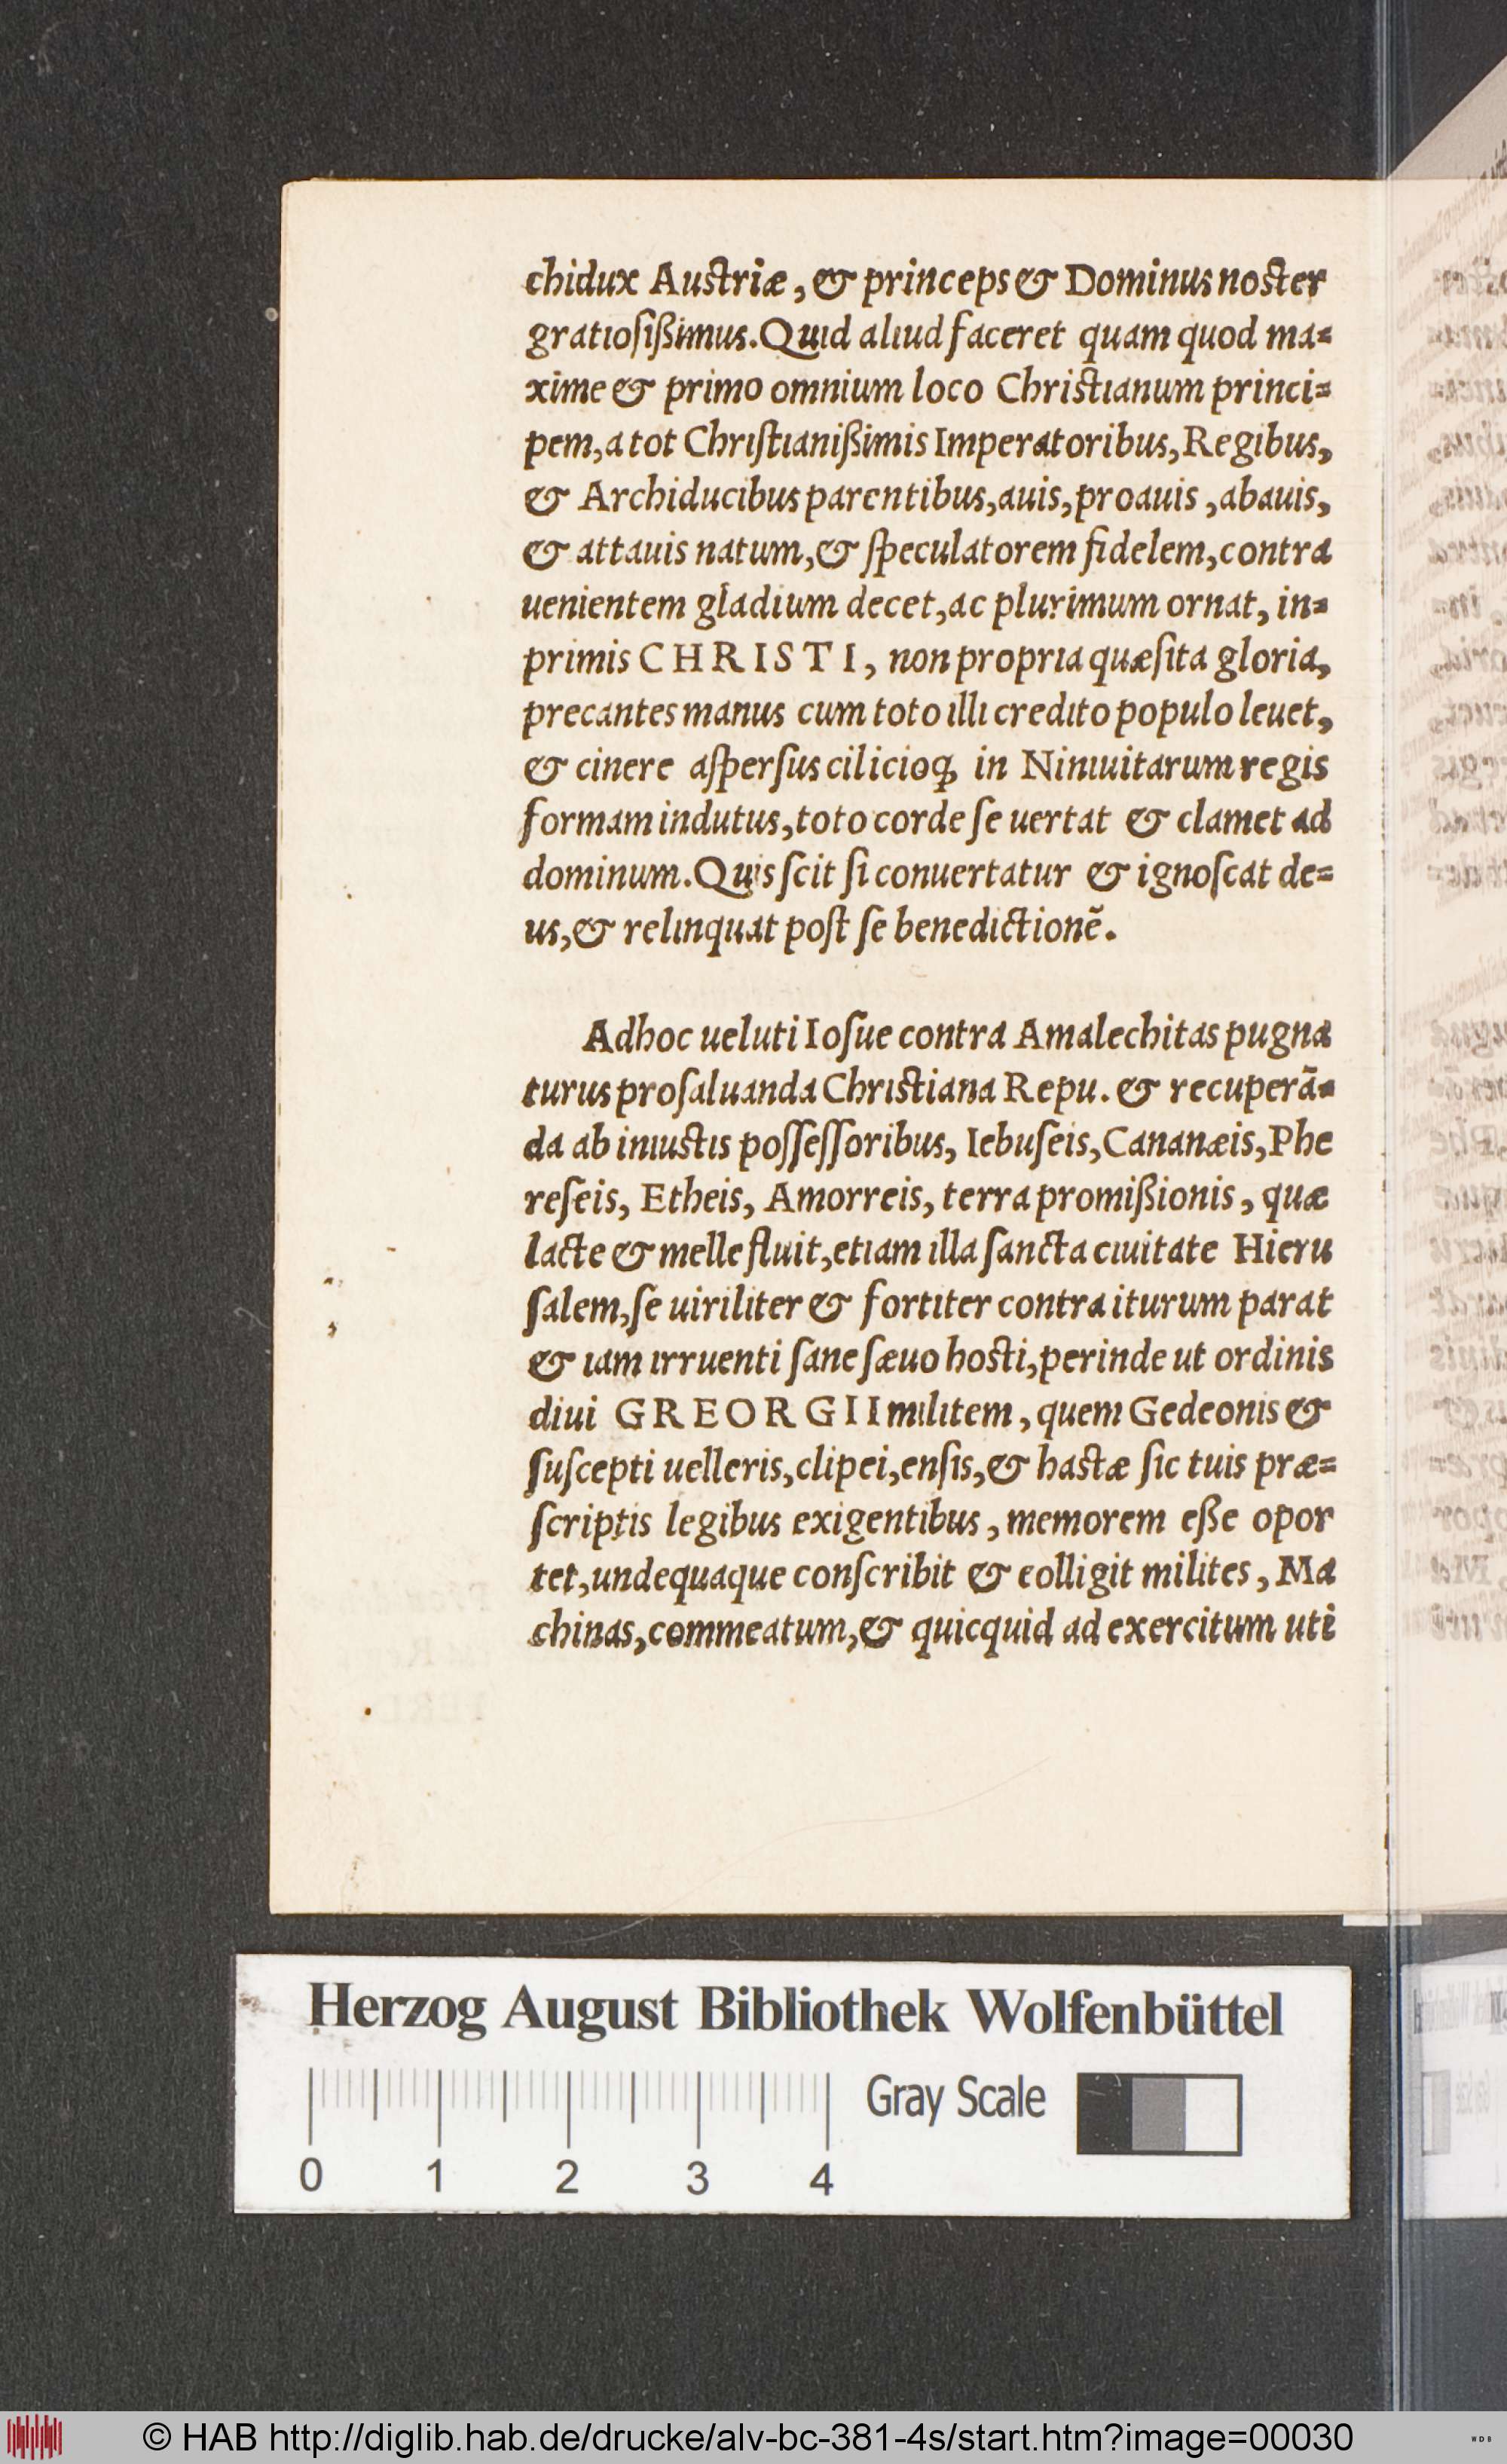 chidux Austriæ, & princeps & Dominus noster
gratiosißimus. Quid aliud faceret quam quod ma=
xime & primo omnium loco Christianum princi=
pem, a tot Christianißimis Imperatoribus, Regibus,
& Archiducibus parentibus, auis, proauis, abauis,
& attauis natum, & speculatorem fidelem, contra
uenientem gladium decet, ac plurimum ornat, in=
primis CHRISTI, non propria quæsita gloria,
precantes manus cum toto illi credito populo leuet,
& cinere aspersus cilicioq; in Niniuitarum regis
formam indutus, toto corde se uertat & clamet ad
dominum. Quis scit si conuertatur & ignoscat de=
us, & relinquat post se benedictionē.
Adhoc ueluti Iosue contra Amalechitas pugna
turus pro saluanda Christiana Repu. & recuperā=
da ab iniustis possessoribus, Iebuseis, Cananæis, Phe
reseis, Etheis, Amorreis, terra promißionis, quæ
lacte & melle fluit, etiam illa sancta ciuitate Hieru
salem, se uiriliter & fortiter contra iturum parat
& iam irruenti sane sæuo hosti, perinde ut ordinis
diui GREORGII militem, quem Gedeonis &
suscepti uelleris, clipei, ensis, & hastæ sic tuis præ=
scriptis legibus exigentibus, memorem eße opor
tet, undequaque conscribit & colligit milites, Ma
chinas, commeatum, & quicquid ad exercitum uti
Herzog August Bibliothek Wolfenbüttel
Gray Scale
0 1 2 3 4
© HAB http://diglib.hab.de/drucke/alv-bc-381-4s/start.htm?image=00030